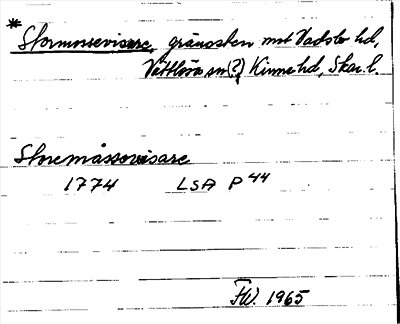 * Stormossevisare, gränssten mot Vadsbo hd,
Vättlösa sn (?) Kinne hd, Skar. l.
Storemåssovisare
1774 LSA P 44
F.W. 1965